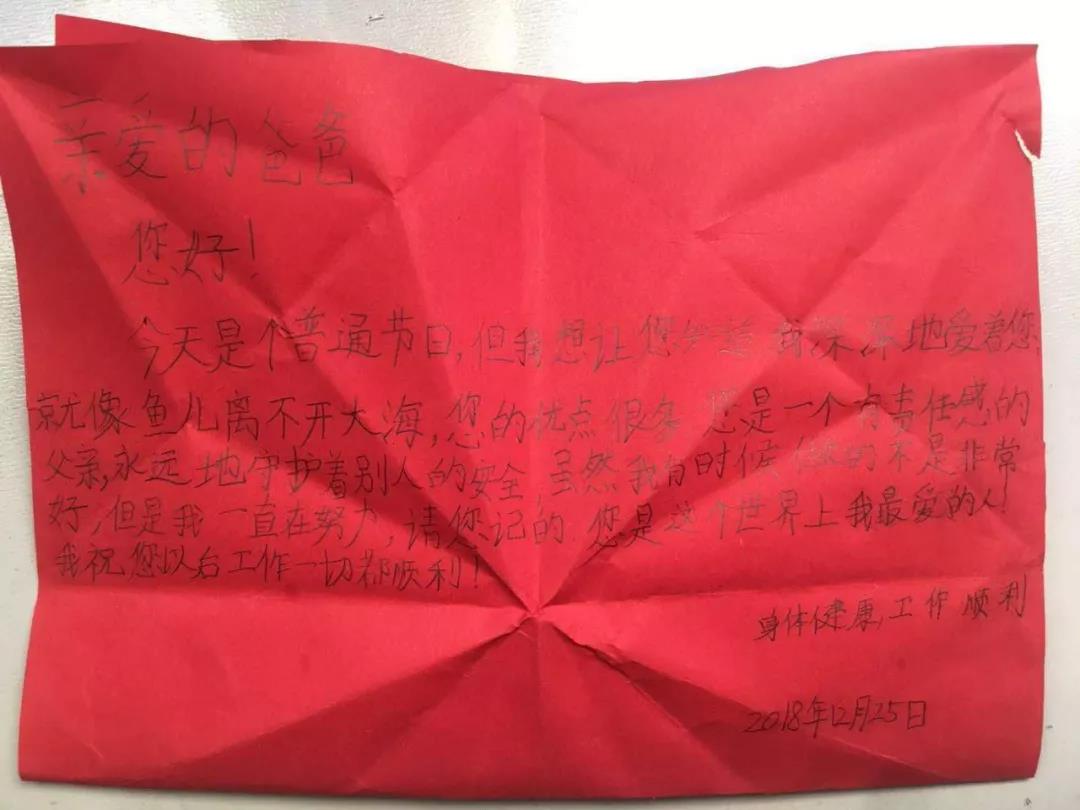 亲爱的爸爸
您好!
今天是个普通节日,但我想让您知道,我深深地爱着您,
就像鱼儿离不开大海,您的优点很多,您是一个有责任感的
父亲,永远地守护着别人的安全,虽然我有时候做的不是非常
好,但是我一直在努力,请您记的,您是这个世界上我最爱的人!
我祝您以后工作一切都顺利!
身体健康,工作顺利
2018年12月25日